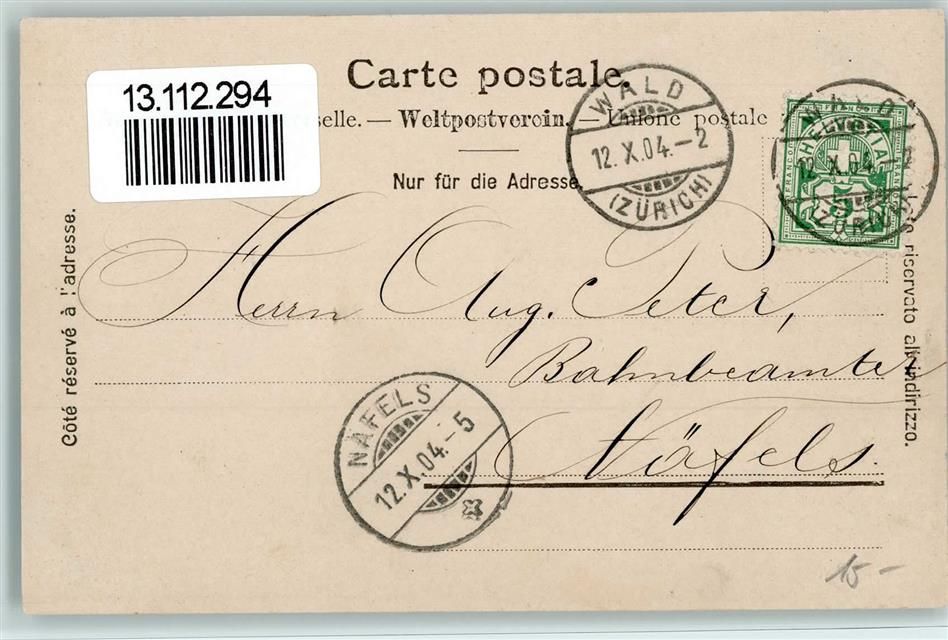 Carte postale.
13.112.294
selle. — Weltpostverein. — Unione postale
Nur für die Adresse.
Côté réservé à l'adresse.
riservato all'indirizzo.
WALD
12.X.04.—2
(ZÜRICH)
HELVETIA
FRANCO
5
12.X.04.—2
(ZÜRICH)
Herrn Aug. Peter,
Bahnbeamter
Näfels.
NÄFELS
12.X.04.—5
15 –